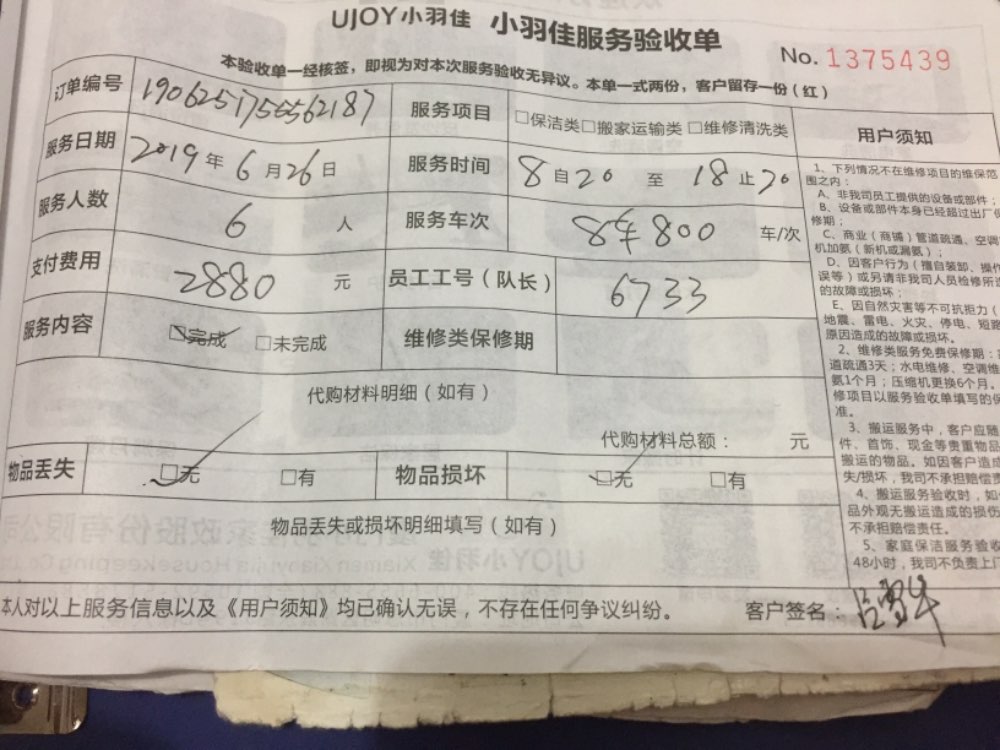 UJOY小羽佳 小羽佳服务验收单
No. 1375439
本验收单一经核签，即视为对本次服务验收无异议。本单一式两份，客户留存一份（红）
订单编号 1906251755562187 服务项目 □保洁类□搬家运输类 □维修清洗类
服务日期 2019 年 6 月 26 日 服务时间 8 自 20 至 18 止 20
服务人数 6 人 服务车次 8车800 车/次
支付费用 2880 元 员工工号（队长） 6733
服务内容 □完成 □未完成 维修类保修期
代购材料明细（如有）
代购材料总额： 元
物品丢失 □无 □有 物品损坏 □无 □有
物品丢失或损坏明细填写（如有）
本人对以上服务信息以及《用户须知》均已确认无误，不存在任何争议纠纷。 客户签名：
用户须知
1、下列情况不在维修项目的维保范
围之内：
A、非我司员工提供的设备或部件；
B、设备或部件本身已经超过出厂
修期；
C、商业（商铺）管道疏通、空调
机加氨（新机或漏氨）；
D、因客户行为（擅自装卸、操作
误等）或另请非我司人员检修所
的故障或损坏；
E、因自然灾害等不可抗拒力（
地震、雷电、火灾、停电、短路
原因造成的故障或损坏。
2、维修类服务免费保修期：
道疏通3天；水电维修、空调维
氨1个月；压缩机更换6个月。
修项目以服务验收单填写的保
准。
3、搬运服务中，客户应随
件、首饰、现金等贵重物品
搬运的物品。如因客户造成
失/损坏，我司不承担赔偿责
4、搬运服务验收时，如
品外观无搬运造成的损伤
不承担赔偿责任。
5、家庭保洁服务验收
48小时，我司不负责上门